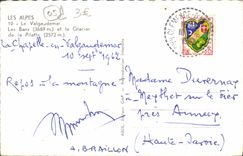 LES ALPES
10 - Le Valgaudemar
Les Bans (3669 m.) et le Glacier
de la Pilatte (2572 m.)
3€
La Chapelle-en-Valgaudemar
10 sept 1962
Repos à la montagne
A. BRAILLON
Madame Duvernay
Meythet sur le Fier
près Annecy
(Haute-Savoie)